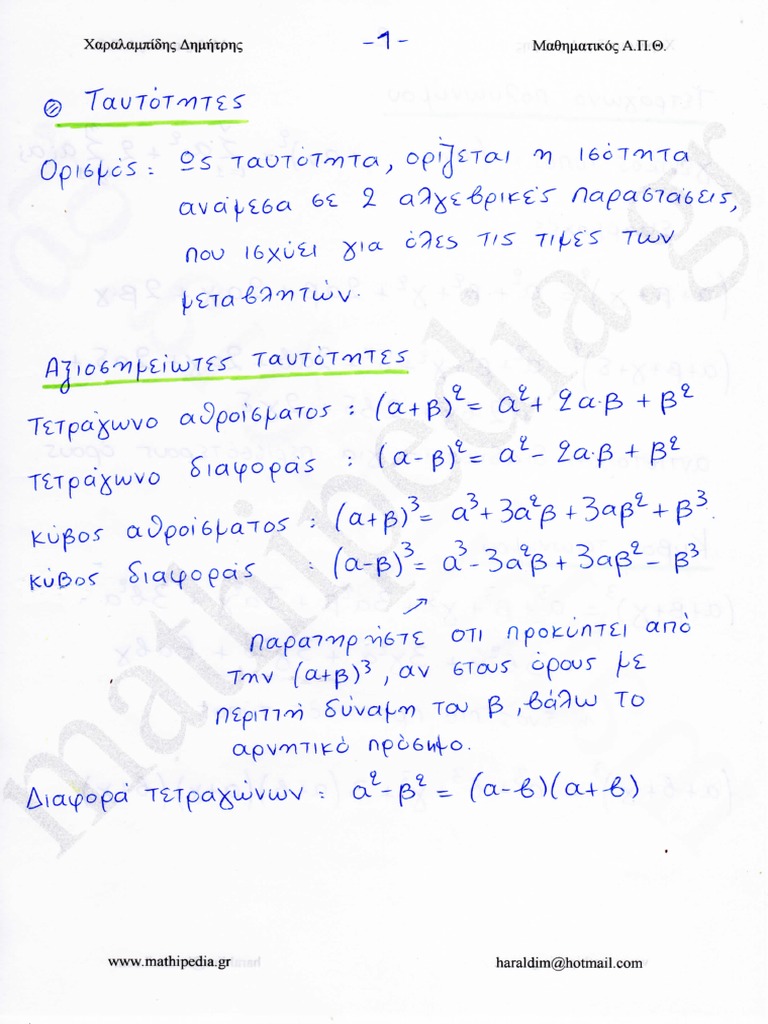 Χαραλαμπίδης Δημήτρης -1- Μαθηματικός Α.Π.Θ.
Ταυτότητες
Ορισμός: Ως ταυτότητα, ορίζεται η ισότητα
ανάμεσα σε 2 αλγεβρικές παραστάσεις,
που ισχύει για όλες τις τιμές των
μεταβλητών.
Αξιοσημείωτες ταυτότητες
Τετράγωνο αθροίσματος : (α+β)² = α² + 2α·β + β²
Τετράγωνο διαφοράς : (α-β)² = α² - 2α·β + β²
κύβος αθροίσματος : (α+β)³ = α³ + 3α²β + 3αβ² + β³.
κύβος διαφοράς : (α-β)³ = α³ - 3α²β + 3αβ² - β³
παρατηρήστε οτι προκύπτει από
την (α+β)³, αν στους όρους με
περιττή δύναμη του β, βάλω το
αρνητικό πρόσημο.
Διαφορά τετραγώνων : α² - β² = (α-β)(α+β)
mathipedia.gr
www.mathipedia.gr haraldim@hotmail.com